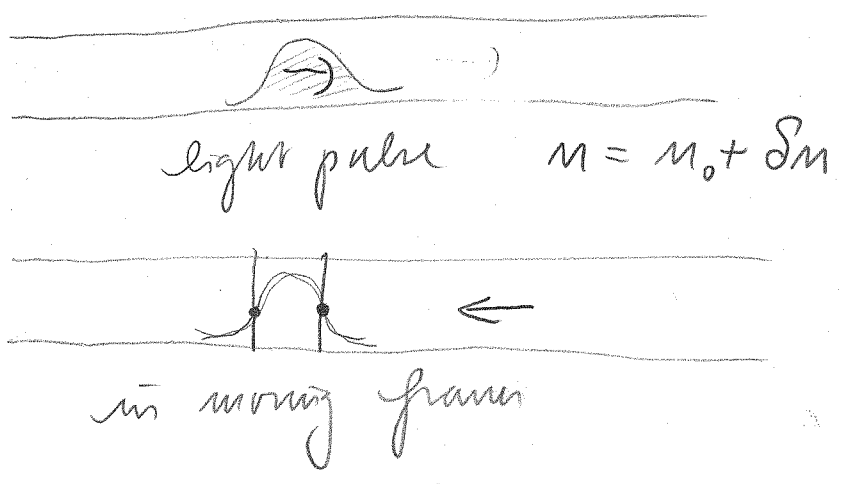 light pulse
n = n₀ + δn
in moving frame